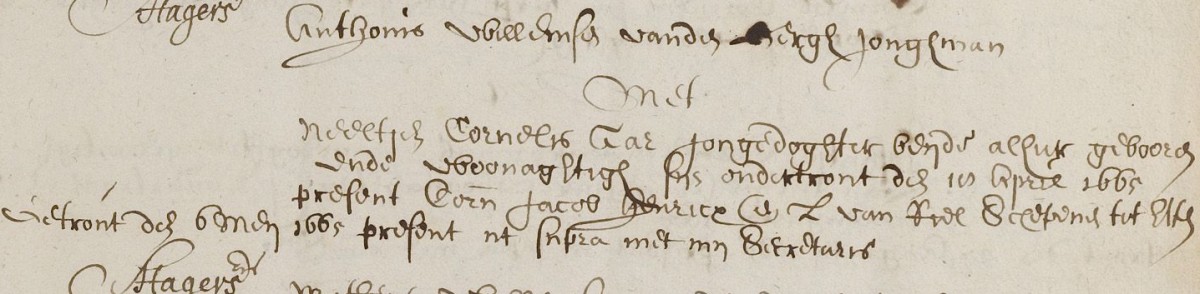 Hagers
Anthonis Willemse vanden Bergh Jonghman
Met
Neeltjen Cornelis Jongedoghter beijde alhier gebooren
ende woonaghtigh sijn ondertrout den 10 April 1665
present Corn Jacob Henricx van Riel Scepene tot
Getrout den 6 Meij 1665 present ut supra met mij Secretaris
Hagers